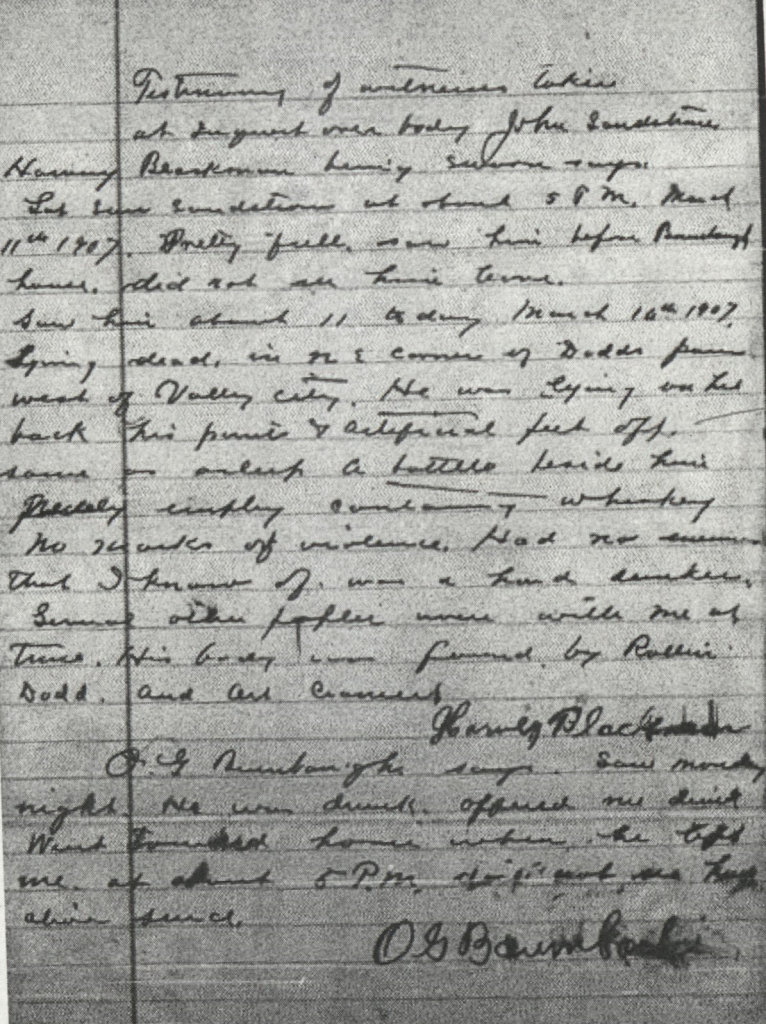 Testimony of witnesses taken
at Inquest over body John Sandstrom
Harvey Blackman being sworn says.
Last saw Sandstrom at about 5 P.M. March
11th 1907. Pretty full. saw him before
house. did not see him leave.
Saw him about 11 to day March 1907.
Lying dead. in N E corner of Dodds farm
west of Valley city. He was lying on his
back his pants & artificial feet off.
same as asleep A bottle beside him
empley containing whiskey
No marks of violence. Had no
that I know of. was a hard drinker.
Several other were with me at
time. His body was found by Rollin
Dodd. and Art
Harvey Blackman
O. G says. Saw monday
night. He was drunk. offered me drink
Went toward home when he left
me. at about 5 P.M. did not see him
alive since.
O G